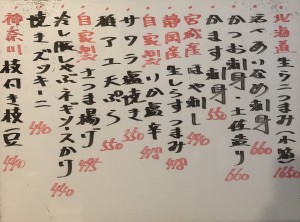 北海道 生ウニつまみ(小箱) 1650
活〆あいなめ刺身 660
かつお刺身・土佐造り 660
宮城産 ほや刺し 550
静岡産 生しらすつまみ 478
自家製 いか塩辛 478
サワラ塩焼き 550
稚アユ天ぷら 550
自家製 さつま揚げ 495
冷し豚しゃぶネギソースがけ 440
焼きズッキーニ 440
神奈川 枝付き枝豆 440